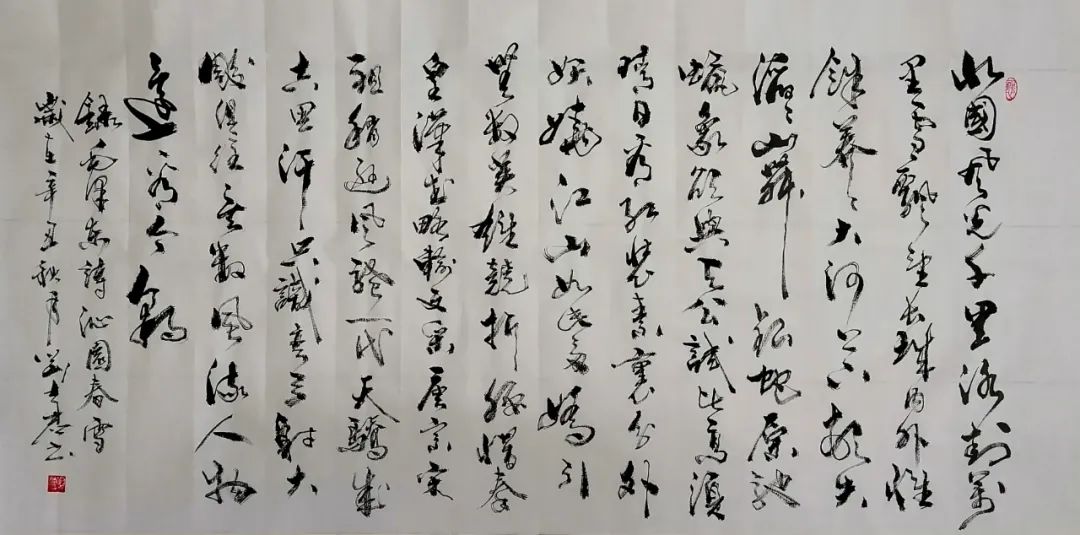 北國風光千里冰封萬
里雪飄望長城內外惟
餘莽莽大河上下頓失
滔滔山舞銀蛇原馳
蠟象欲與天公試比高須
晴日看紅裝素裹分外
妖嬈江山如此多嬌引
無數英雄競折腰惜秦
皇漢武略輸文采唐宗宋
祖稍遜風騷一代天驕成
吉思汗只識彎弓射大
雕俱往矣數風流人物
還看今朝
錄毛澤東詩沁園春雪
歲在辛丑秋月